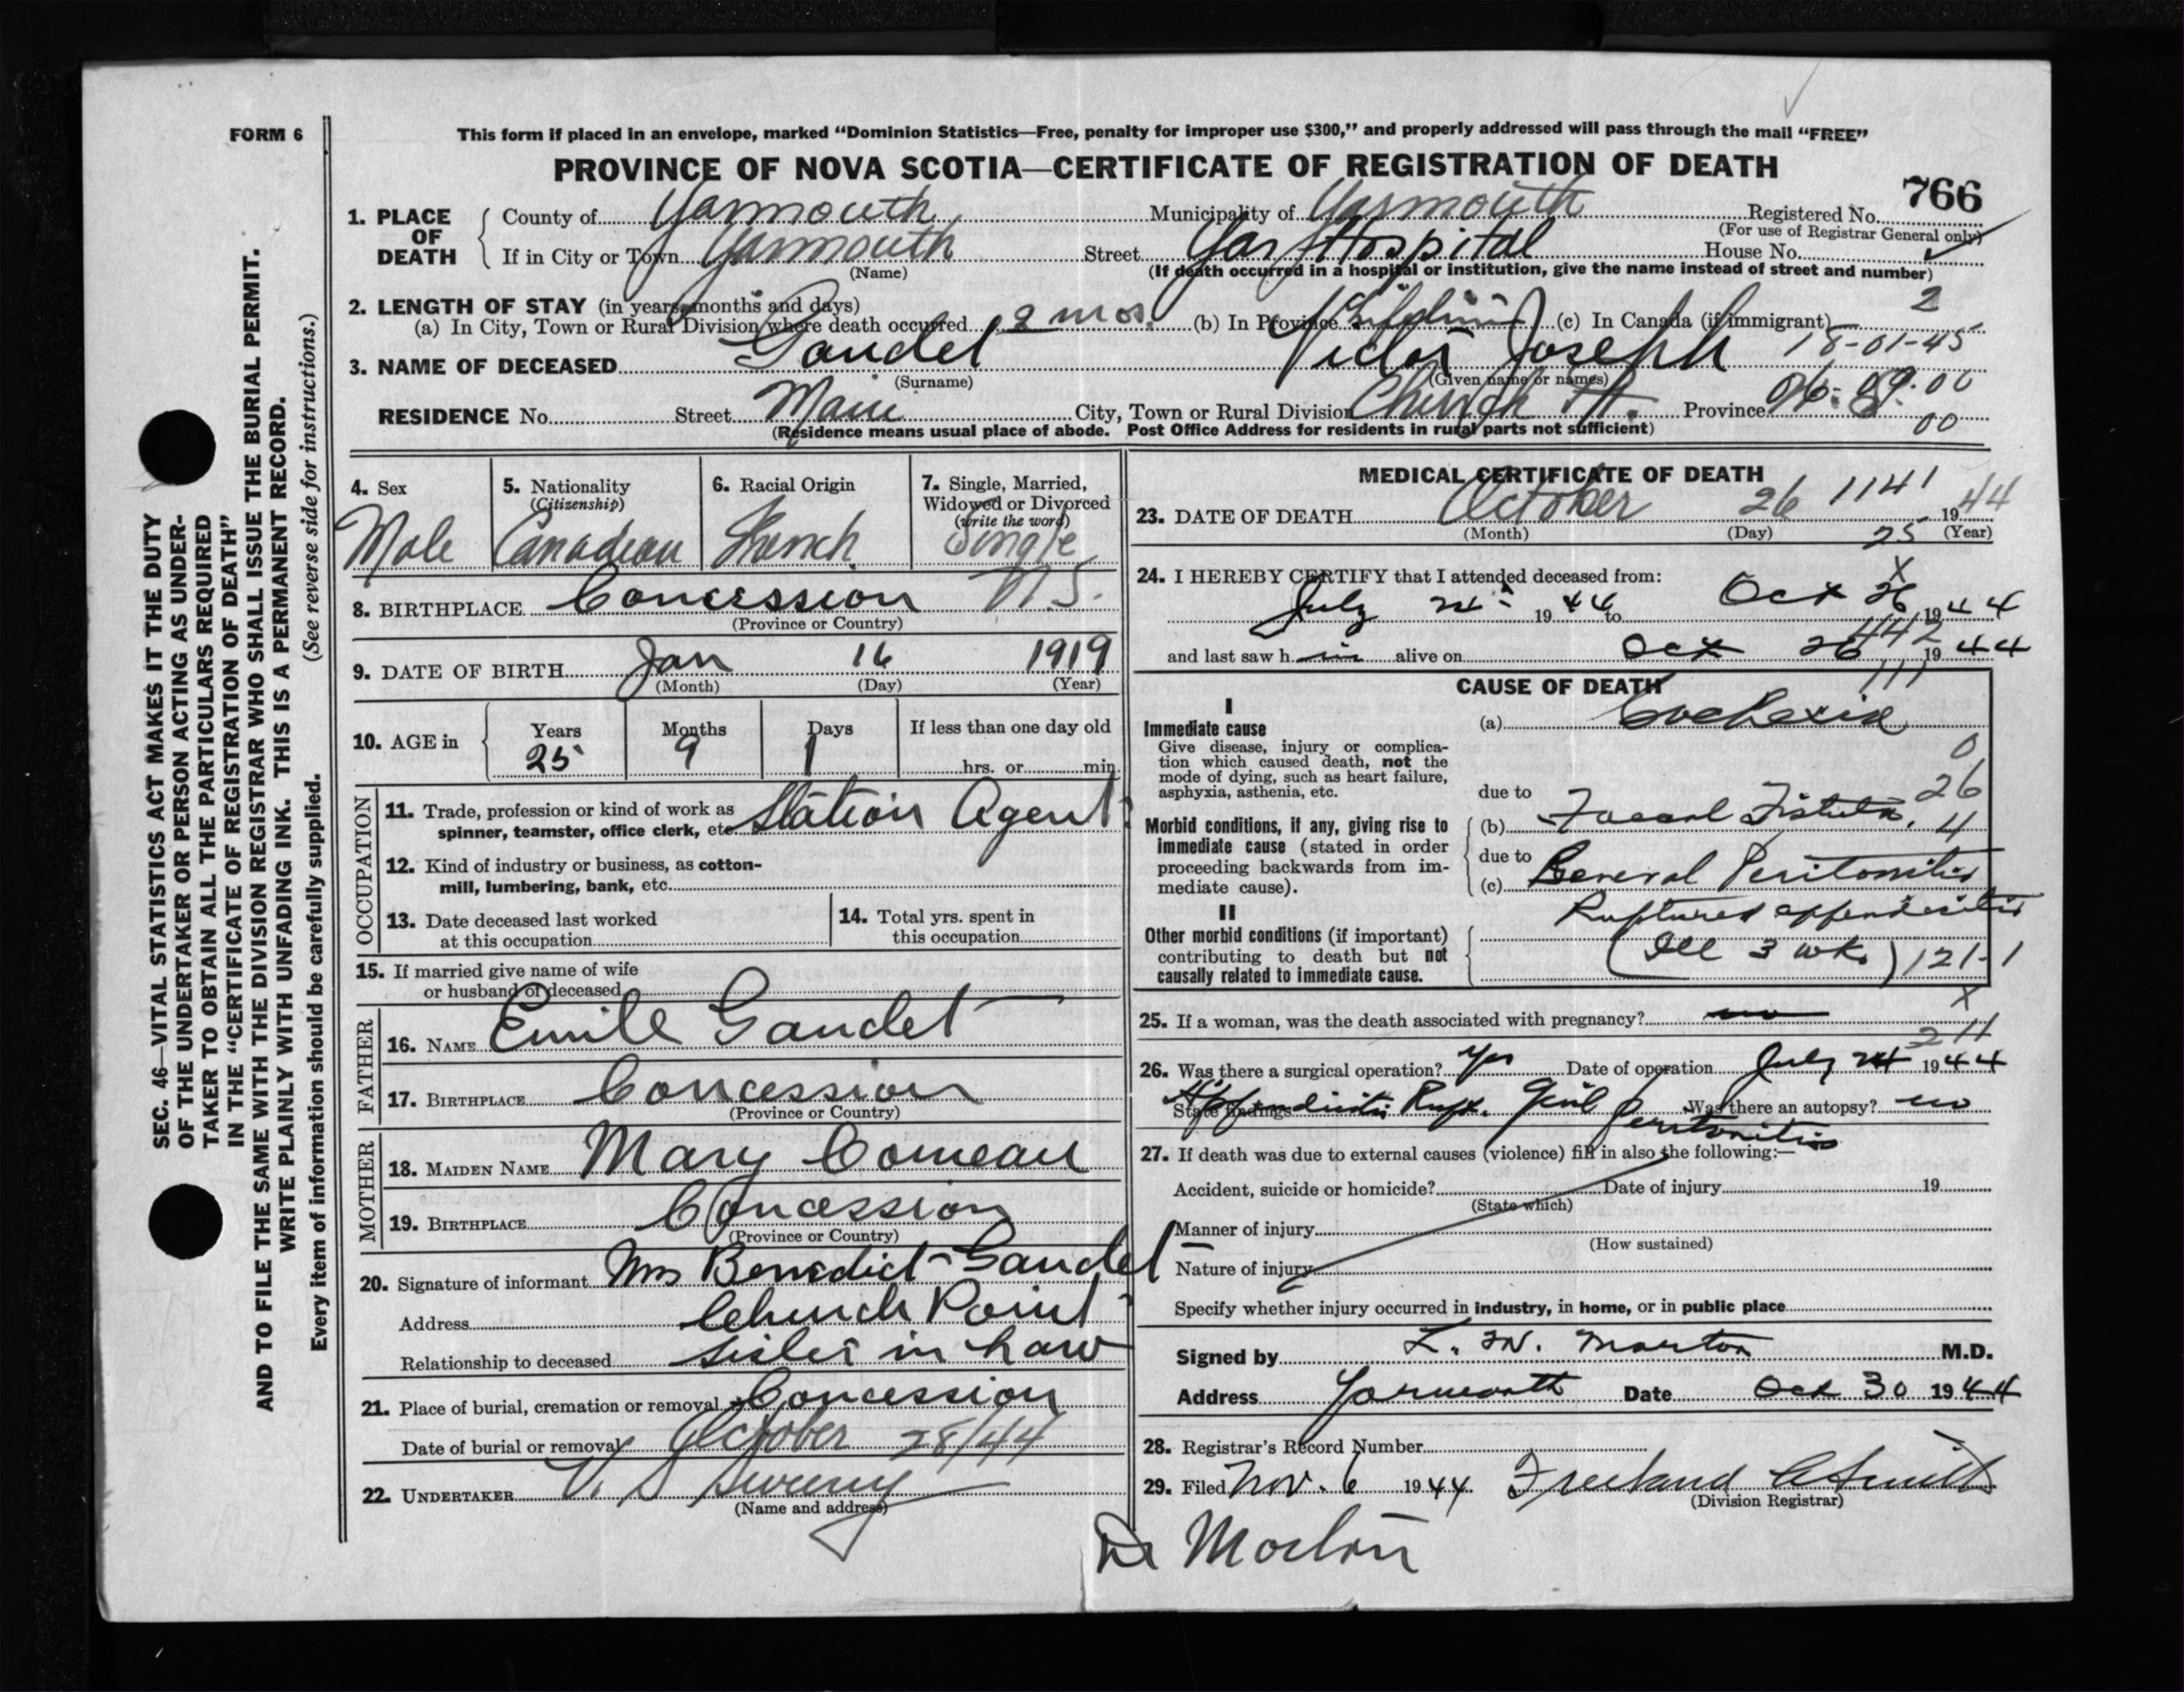 FORM 6
This form if placed in an envelope, marked “Dominion Statistics—Free, penalty for improper use $300,” and properly addressed will pass through the mail “FREE”
PROVINCE OF NOVA SCOTIA—CERTIFICATE OF REGISTRATION OF DEATH
766
1. PLACE OF DEATH
County of Yarmouth Municipality of Yarmouth Registered No.
(For use of Registrar General only)
If in City or Town Yarmouth Street Yar Hospital House No.
(Name) (If death occurred in a hospital or institution, give the name instead of street and number)
2. LENGTH OF STAY (in years, months and days) 2
(a) In City, Town or Rural Division where death occurred mos. (b) In Province Lifetime (c) In Canada (if immigrant)
18-01-45
3. NAME OF DECEASED Gaudet Victor Joseph
(Surname) (Given name or names)
RESIDENCE No. Street Main City, Town or Rural Division Church Pt. Province
00
(Residence means usual place of abode. Post Office Address for residents in rural parts not sufficient)
4. Sex Male
5. Nationality (Citizenship) Canadian
6. Racial Origin French
7. Single, Married, Widowed or Divorced (write the word) Single
8. BIRTHPLACE Concession N.S.
(Province or Country)
9. DATE OF BIRTH Jan 16 1919
(Month) (Day) (Year)
10. AGE in Years 25 Months 9 Days 1 If less than one day old
hrs. or min.
OCCUPATION
11. Trade, profession or kind of work as spinner, teamster, office clerk, etc. Station Agent
12. Kind of industry or business, as cotton-mill, lumbering, bank, etc.
13. Date deceased last worked at this occupation
14. Total yrs. spent in this occupation
15. If married give name of wife or husband of deceased
FATHER
16. NAME Emile Gaudet
17. BIRTHPLACE Concession
(Province or Country)
MOTHER
18. MAIDEN NAME Mary Comeau
19. BIRTHPLACE Concession
(Province or Country)
20. Signature of informant Mrs Benedict Gaudet
Address Church Point
Relationship to deceased sister in Law
21. Place of burial, cremation or removal Concession
Date of burial or removal October 28/44
22. UNDERTAKER V. S Sweeny
(Name and address)
MEDICAL CERTIFICATE OF DEATH
1141
23. DATE OF DEATH October 26 1944
(Month) (Day) 25 (Year)
24. I HEREBY CERTIFY that I attended deceased from: X
July 24 1944 to Oct 26 1944
442
and last saw h im alive on Oct 26 1944
111
CAUSE OF DEATH
I
Immediate cause
Give disease, injury or complication which caused death, not the mode of dying, such as heart failure, asphyxia, asthenia, etc.
(a) Cachexia
0
due to 26
Morbid conditions, if any, giving rise to immediate cause (stated in order proceeding backwards from immediate cause).
(b) Faecal Fistula. 4
due to
(c) General Peritonitis
Ruptured appendicitis
II
Other morbid conditions (if important) contributing to death but not causally related to immediate cause.
(Ill 3 wk.) 121-1
X
25. If a woman, was the death associated with pregnancy? no
211
26. Was there a surgical operation? Yes Date of operation July 24 1944
State findings Appendicitis Rupt. Genl Peritonitis Was there an autopsy? no
27. If death was due to external causes (violence) fill in also the following:—
Accident, suicide or homicide? Date of injury 19
(State which)
Manner of injury
(How sustained)
Nature of injury
Specify whether injury occurred in industry, in home, or in public place
Signed by L. M. Morton M.D.
Address Yarmouth Date Oct 30 1944
28. Registrar's Record Number
29. Filed Nov. 6 1944.
(Division Registrar)
Dr Morton
SEC. 46—VITAL STATISTICS ACT MAKES IT THE DUTY
OF THE UNDERTAKER OR PERSON ACTING AS UNDER-
TAKER TO OBTAIN ALL THE PARTICULARS REQUIRED
IN THE “CERTIFICATE OF REGISTRATION OF DEATH”
AND TO FILE THE SAME WITH THE DIVISION REGISTRAR WHO SHALL ISSUE THE BURIAL PERMIT.
WRITE PLAINLY WITH UNFADING INK. THIS IS A PERMANENT RECORD.
Every item of information should be carefully supplied. (See reverse side for instructions.)